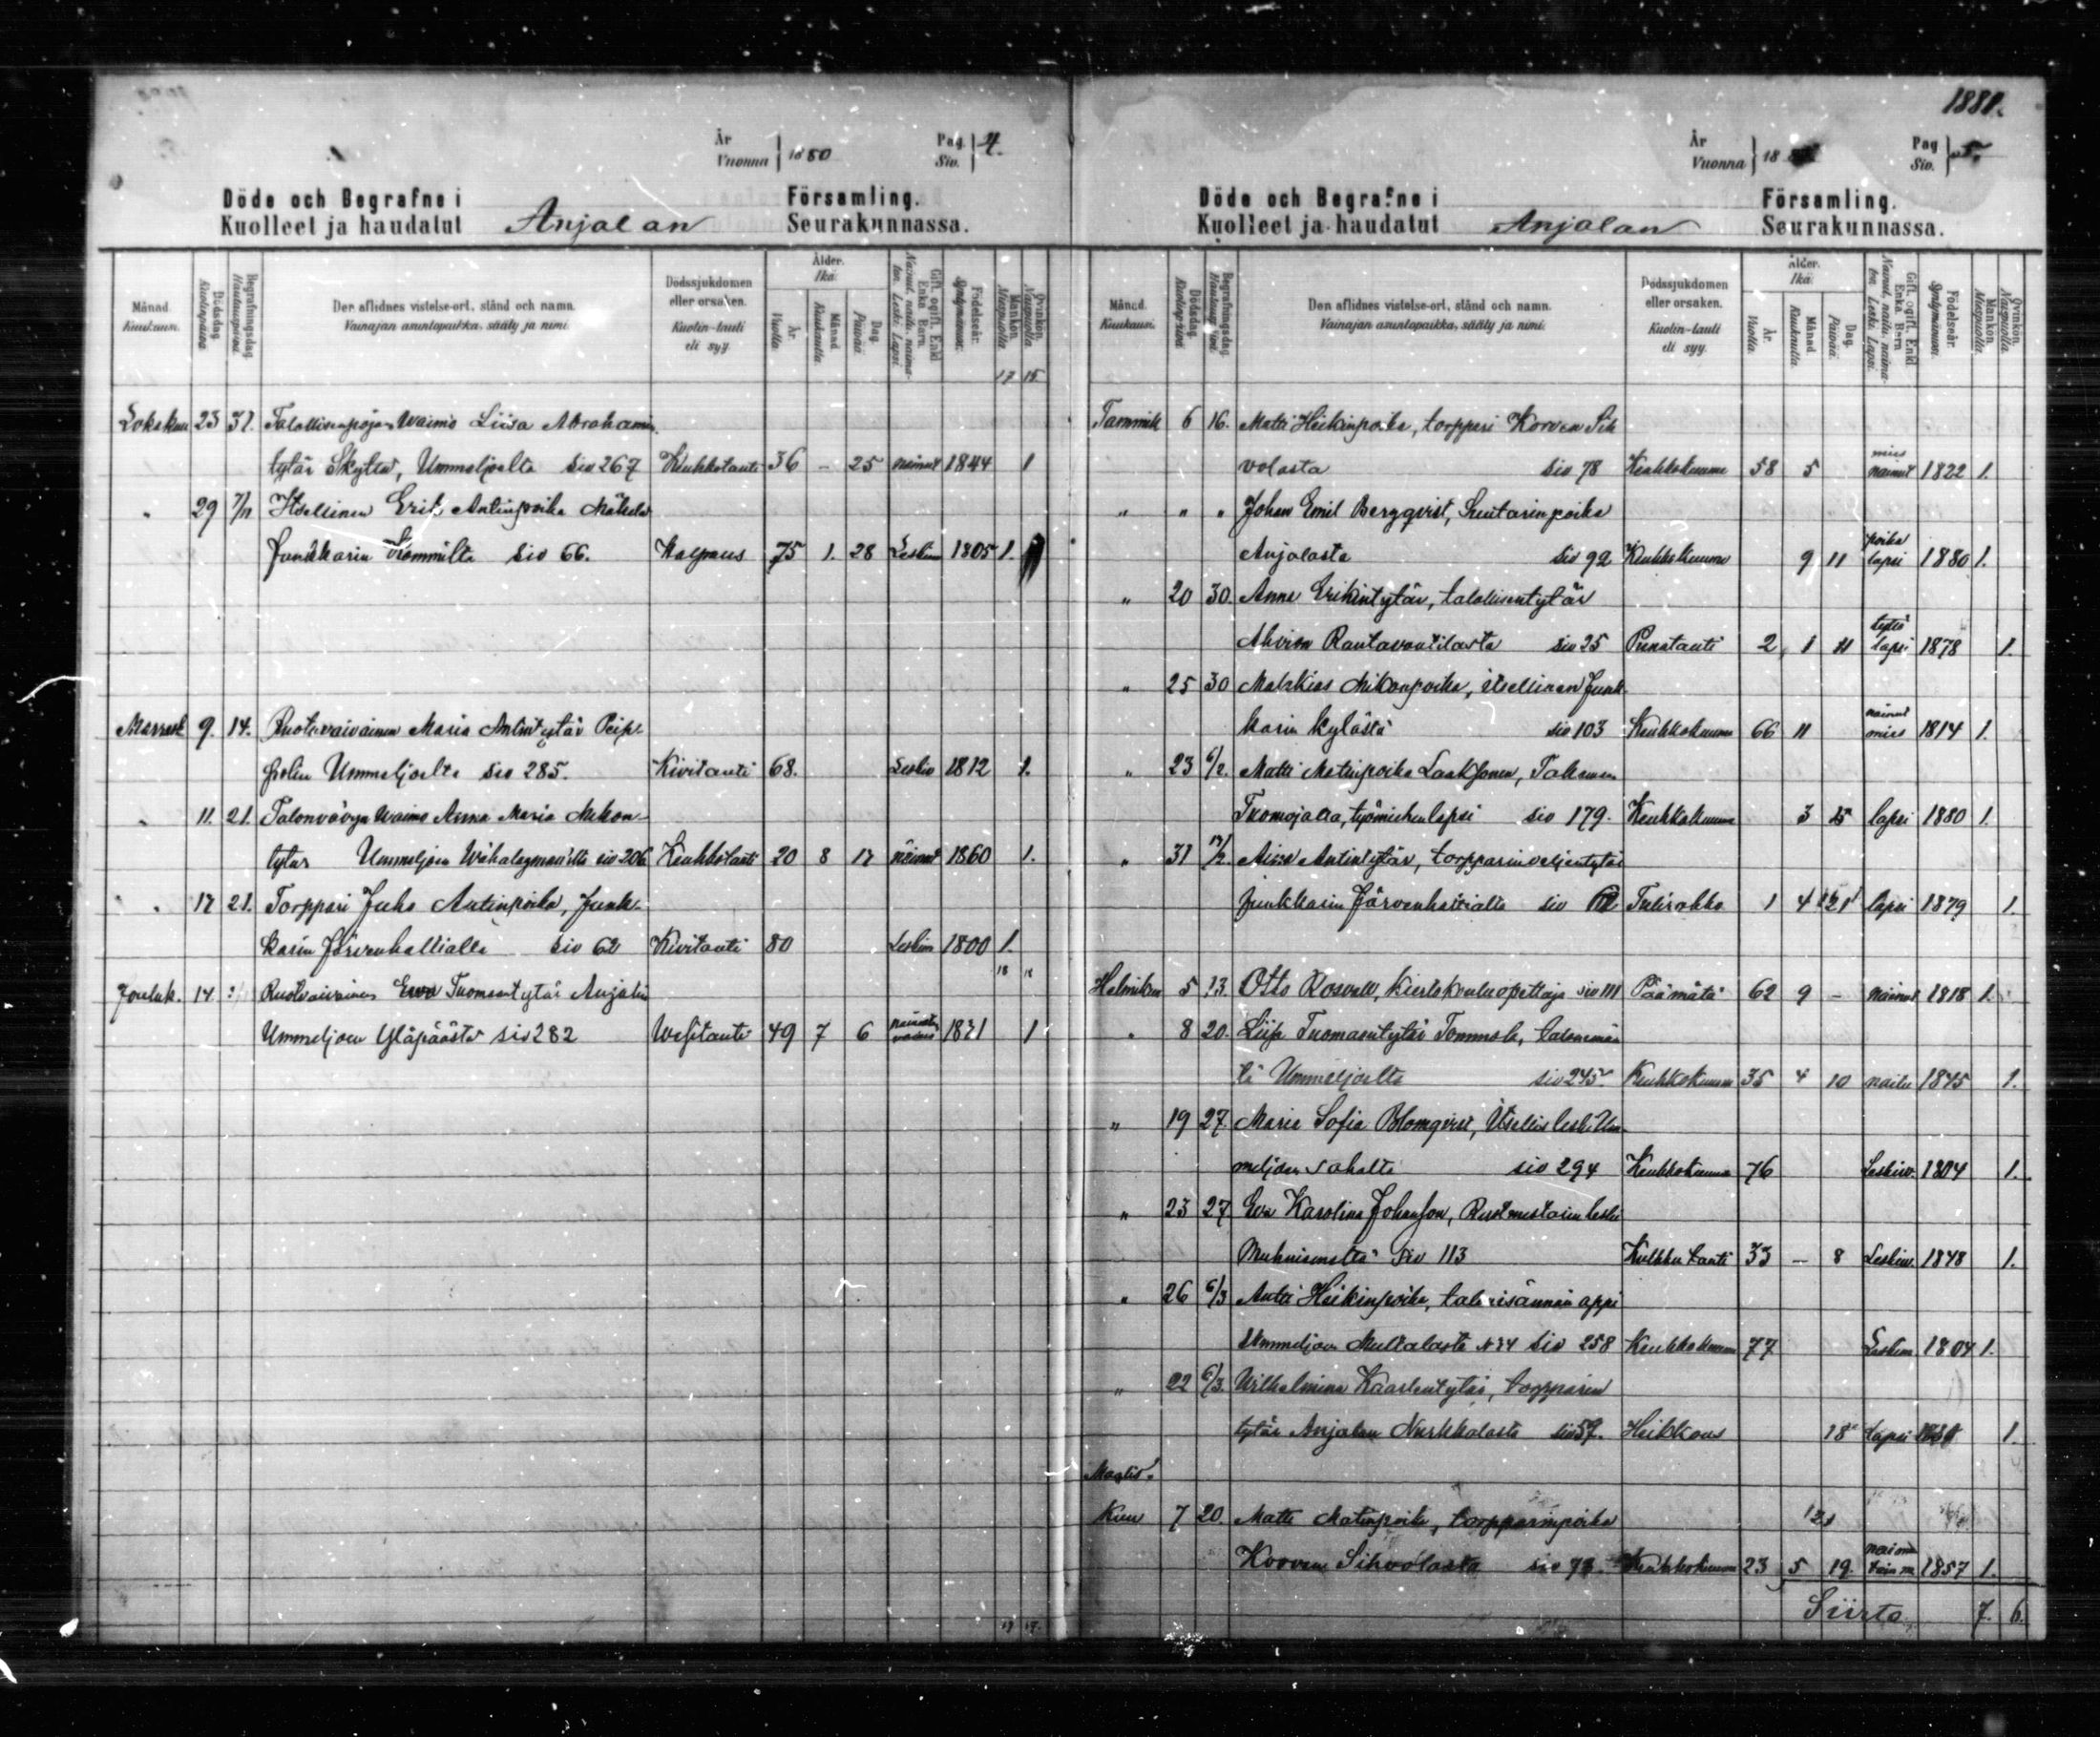 År
Vuonna } 1880 Pag. Siv. } 4.
Döde och Begrafne i Församling.
Kuolleet ja haudatut Anjalan Seurakunnassa.
Månad. Kuukausi. Dödsdag. Kuolinpäivä. Begrafningsdag. Hautauspäivä. Den aflidnes vistelse-ort, stånd och namn. Vainajan asuntopaikka, sääty ja nimi. Dödssjukdomen eller orsaken. Kuolin-tauti eli syy. Ålder. Ikä. År. Vuotta. Månad. Kuukautta. Dag. Päivää. Gift, ogift, Enkl. Enka, Barn. Födelseår. Syntymävuosi. Mankön. Miespuolia. Qvinkön. Naispuolia.
17 15
Lokakuu 23 31. Talollisenpojan Waimo Liisa Abrahamin
tytär Skyltä, Ummeljoelta siv 267 Keuhkotauti 36 - 25 nainut 1844 1
" 29 7/11 Itsellinen Erik Antinpoika Mäkelä
Junkkarin siv 66. Halpaus 75 1. 28 Leskim 1805 1.
Marrask 9. 14. Ruotivaivainen Maria Antintytär
Ummeljoelta siv 285. Kivitauti 68. Leskiv 1812 1.
" 11. 21. Talonvävyn Waimo Anna Maria Mikon-
tytär Ummeljoen siv 206 Keuhkotauti 20 8 17 nainut 1860 1.
" 17 21. Torppari Juho Antinpoika, Junk-
karin Järvenkallialla siv 62 Kivitauti 80 Leskim 1800 1.
18 18
Jouluk. 14 Ruotivaivainen Ewa Tuomaantytär Anjalan
Ummeljoen Yläpäästä siv 282 Wesitauti 49 7 6 1831 1
19 19.
1881.
År
Vuonna } 18 Pag Siv. } 5.
Döde och Begrafne i Församling.
Kuolleet ja haudatut Anjalan Seurakunnassa.
Månad. Kuukausi. Dödsdag. Kuolinpäivä. Begrafningsdag. Hautauspäivä. Den aflidnes vistelse-ort, stånd och namn. Vainajan asuntopaikka, sääty ja nimi. Dödssjukdomen eller orsaken. Kuolin-tauti eli syy. Ålder. Ikä. År. Vuotta. Månad. Kuukautta. Dag. Päivää. Gift, ogift, Enkl. Enka, Barn. Födelseår. Syntymävuosi. Mankön. Miespuolia. Qvinkön. Naispuolia.
Tammik 6 16. Matti Heikinpoika, torppari Korven Sih
volasta siv 78 Keuhkokuume 58 5 mies nainut 1822 1.
" " " Johan Emil Bergqvist, Suutarinpoika
Anjalasta siv 92 Keuhkokuume 9 11 poika lapsi 1880 1.
" 20 30. Anna Erikintytär, talollisentytär
Ahvion Rantavoutilasta siv 25 Punatauti 2 1 11 tyttö lapsi 1878 1.
" 25 30 Matzkias Mikonpoika, itsellinen Junk
karin kylästä siv 103 Keuhkokuume 66 11 nainut mies 1814 1.
" 23 6/2. Matti Matinpoika Laaksonen,
Tuomojalta, työmiehenlapsi siv 179. Keuhkokuume 3 15 lapsi 1880 1.
" 31 Antintytär, torpparinveljentytär
Junkkarin Järvenkallialta siv Tulirokko 1 4 21 lapsi 1879 1.
Helmikuu 5 13. Otto Rosvall, Kiertokouluopettaja siv 111 Päämätä 62 9 - nainut 1818 1.
" 8 20. Liisa Tuomaantytär Tommola, talonemän
tä Ummeljoelta siv 245 Keuhkokuume 35 4 10 naitu 1845 1.
" 19 27. Maria Sofia Blomqvist, Itsellis leski Um
meljoen sahalta siv 294 Keuhkokuume 76 Leskiv. 1804 1.
" 23 27 Eva Karolina Johansson, Ruotmestarin leski
Muhniemeltä siv 113 Kulkku tauti 33 - 8 Leskiv. 1848 1.
" 26 6/3 Antti Heikinpoika, talonisännän appi
Ummeljoen Multalasta N:o 4 siv 258 Keuhkokuume 77 Leskim 1804 1.
" 22 6/3. Wilhelmina Kaarlentytär, torpparin
tytär Anjalan Nurkkalasta siv 57. Heikkous 18 Lapsi 1.
Maalis-
Kuu 7 20. Matti Matinpoika, torpparinpoika
Korven Sihvolasta siv 78. Keuhkokuume 23 5 19. 1857 1.
Siirto 7. 6.